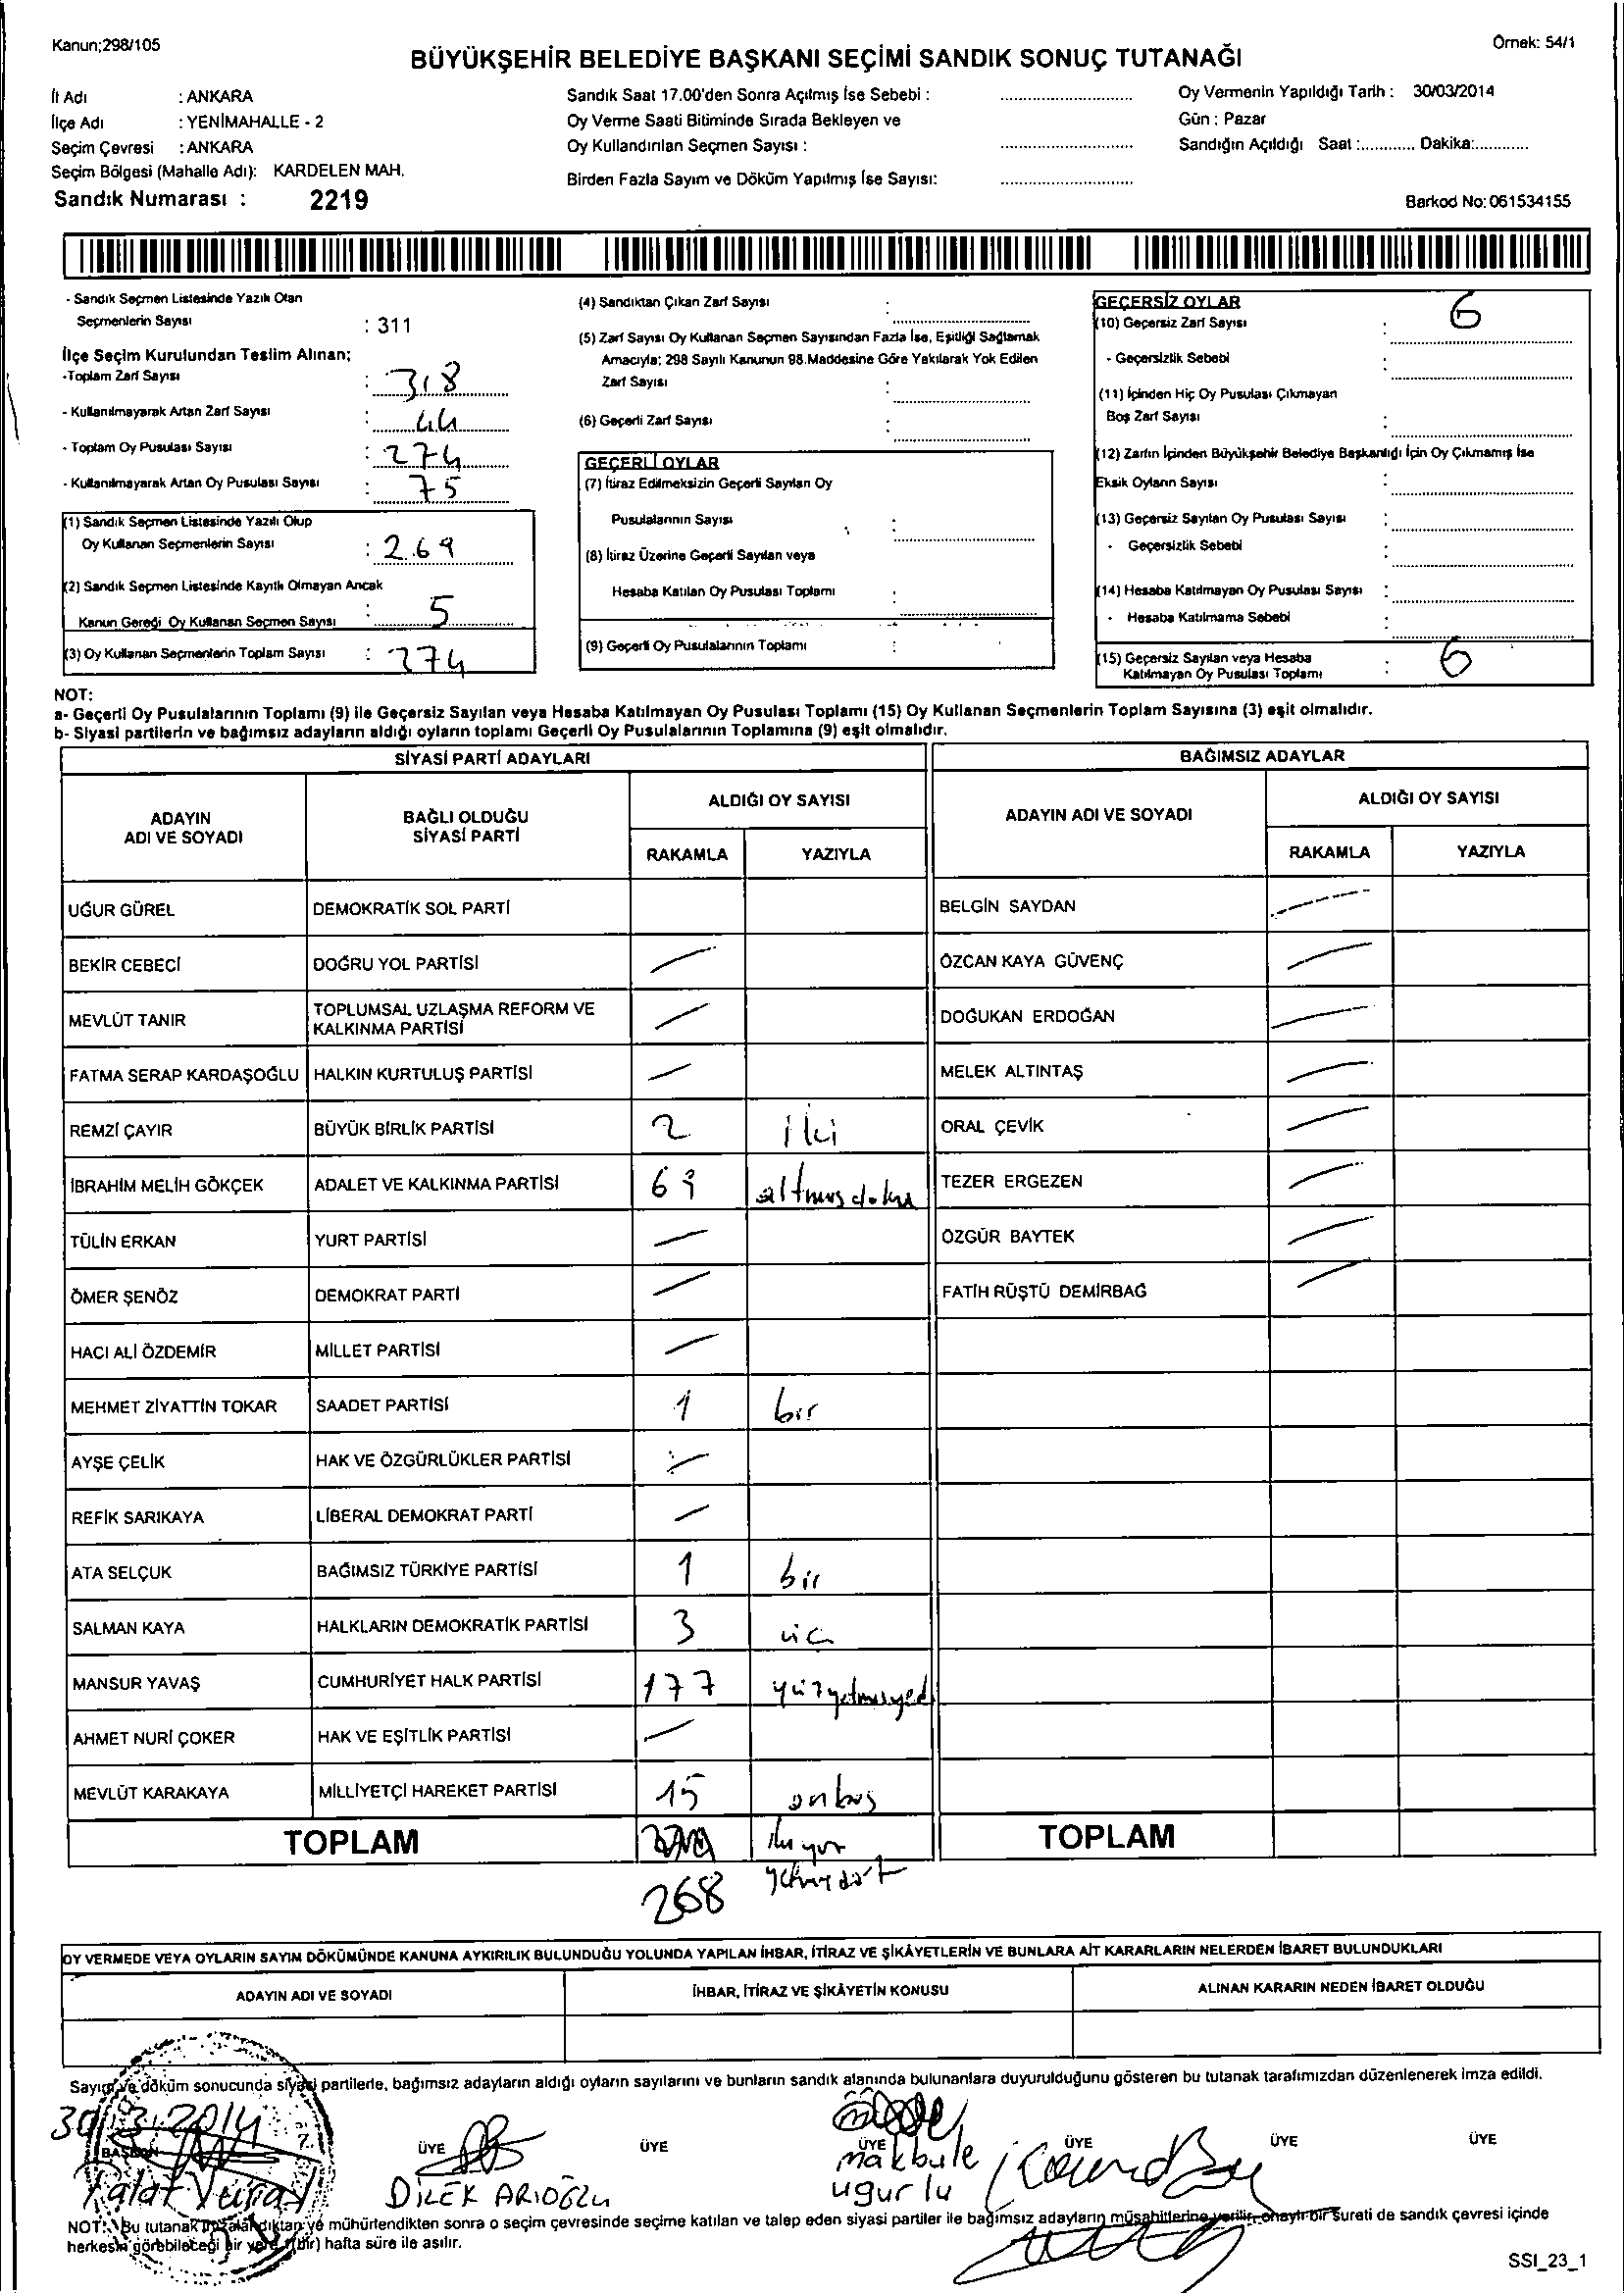 Kanun;298/105
Örnek: 54/1
BÜYÜKŞEHİR BELEDİYE BAŞKANI SEÇİMİ SANDIK SONUÇ TUTANAĞI
İl Adı : ANKARA
İlçe Adı : YENİMAHALLE - 2
Seçim Çevresi : ANKARA
Seçim Bölgesi (Mahalle Adı): KARDELEN MAH.
Sandık Numarası : 2219
Sandık Saat 17.00'den Sonra Açılmış İse Sebebi :
Oy Verme Saati Bitiminde Sırada Bekleyen ve
Oy Kullandırılan Seçmen Sayısı :
Birden Fazla Sayım ve Döküm Yapılmış İse Sayısı:
Oy Vermenin Yapıldığı Tarih : 30/03/2014
Gün : Pazar
Sandığın Açıldığı Saat :............ Dakika:............
Barkod No: 061534155
- Sandık Seçmen Listesinde Yazılı Olan
Seçmenlerin Sayısı : 311
İlçe Seçim Kurulundan Teslim Alınan;
-Toplam Zarf Sayısı : 318
- Kullanılmayarak Artan Zarf Sayısı : 44
- Toplam Oy Pusulası Sayısı : 274
- Kullanılmayarak Artan Oy Pusulası Sayısı : 75
(1) Sandık Seçmen Listesinde Yazılı Olup
Oy Kullanan Seçmenlerin Sayısı : 269
(2) Sandık Seçmen Listesinde Kayıtlı Olmayan Ancak
Kanun Gereği Oy Kullanan Seçmen Sayısı : 5
(3) Oy Kullanan Seçmenlerin Toplam Sayısı : 274
(4) Sandıktan Çıkan Zarf Sayısı :
(5) Zarf Sayısı Oy Kullanan Seçmen Sayısından Fazla İse, Eşitliği Sağlamak
Amacıyla; 298 Sayılı Kanunun 98.Maddesine Göre Yakılarak Yok Edilen
Zarf Sayısı :
(6) Geçerli Zarf Sayısı :
GEÇERLİ OYLAR
(7) İtiraz Edilmeksizin Geçerli Sayılan Oy
Pusulalarının Sayısı :
(8) İtiraz Üzerine Geçerli Sayılan veya
Hesaba Katılan Oy Pusulası Toplamı :
(9) Geçerli Oy Pusulalarının Toplamı :
GEÇERSİZ OYLAR
(10) Geçersiz Zarf Sayısı : 6
- Geçersizlik Sebebi :
(11) İçinden Hiç Oy Pusulası Çıkmayan
Boş Zarf Sayısı :
(12) Zarfın İçinden Büyükşehir Belediye Başkanlığı İçin Oy Çıkmamış İse
Eksik Oyların Sayısı :
(13) Geçersiz Sayılan Oy Pusulası Sayısı :
- Geçersizlik Sebebi :
(14) Hesaba Katılmayan Oy Pusulası Sayısı :
- Hesaba Katılmama Sebebi :
(15) Geçersiz Sayılan veya Hesaba
Katılmayan Oy Pusulası Toplamı : 6
NOT:
a- Geçerli Oy Pusulalarının Toplamı (9) ile Geçersiz Sayılan veya Hesaba Katılmayan Oy Pusulası Toplamı (15) Oy Kullanan Seçmenlerin Toplam Sayısına (3) eşit olmalıdır.
b- Siyasi partilerin ve bağımsız adayların aldığı oyların toplamı Geçerli Oy Pusulalarının Toplamına (9) eşit olmalıdır.
SİYASİ PARTİ ADAYLARI
BAĞIMSIZ ADAYLAR
ADAYIN
ADI VE SOYADI
BAĞLI OLDUĞU
SİYASİ PARTİ
ALDIĞI OY SAYISI
RAKAMLA YAZIYLA
ADAYIN ADI VE SOYADI
ALDIĞI OY SAYISI
RAKAMLA YAZIYLA
UĞUR GÜREL DEMOKRATİK SOL PARTİ BELGİN SAYDAN
BEKİR CEBECİ DOĞRU YOL PARTİSİ ÖZCAN KAYA GÜVENÇ
MEVLÜT TANIR TOPLUMSAL UZLAŞMA REFORM VE
KALKINMA PARTİSİ DOĞUKAN ERDOĞAN
FATMA SERAP KARDAŞOĞLU HALKIN KURTULUŞ PARTİSİ MELEK ALTINTAŞ
REMZİ ÇAYIR BÜYÜK BİRLİK PARTİSİ 2 iki ORAL ÇEVİK
İBRAHİM MELİH GÖKÇEK ADALET VE KALKINMA PARTİSİ 69 TEZER ERGEZEN
TÜLİN ERKAN YURT PARTİSİ ÖZGÜR BAYTEK
ÖMER ŞENÖZ DEMOKRAT PARTİ FATİH RÜŞTÜ DEMİRBAĞ
HACI ALİ ÖZDEMİR MİLLET PARTİSİ
MEHMET ZİYATTİN TOKAR SAADET PARTİSİ 1 bir
AYŞE ÇELİK HAK VE ÖZGÜRLÜKLER PARTİSİ
REFİK SARIKAYA LİBERAL DEMOKRAT PARTİ
ATA SELÇUK BAĞIMSIZ TÜRKİYE PARTİSİ 1 bir
SALMAN KAYA HALKLARIN DEMOKRATİK PARTİSİ 3 üç
MANSUR YAVAŞ CUMHURİYET HALK PARTİSİ 177
AHMET NURİ ÇOKER HAK VE EŞİTLİK PARTİSİ
MEVLÜT KARAKAYA MİLLİYETÇİ HAREKET PARTİSİ 15 onbeş
TOPLAM
TOPLAM
268
OY VERMEDE VEYA OYLARIN SAYIM DÖKÜMÜNDE KANUNA AYKIRILIK BULUNDUĞU YOLUNDA YAPILAN İHBAR, İTİRAZ VE ŞİKÂYETLERİN VE BUNLARA AİT KARARLARIN NELERDEN İBARET BULUNDUKLARI
ADAYIN ADI VE SOYADI İHBAR, İTİRAZ VE ŞİKÂYETİN KONUSU ALINAN KARARIN NEDEN İBARET OLDUĞU
Sayım ve döküm sonucunda siyasi partilerle, bağımsız adayların aldığı oyların sayılarını ve bunların sandık alanında bulunanlara duyurulduğunu gösteren bu tutanak tarafımızdan düzenlenerek imza edildi.
30.3.2014
BAŞKAN ÜYE ÜYE ÜYE ÜYE ÜYE ÜYE
DİLEK ARIOĞLU
makbule
ugurlu
NOT: Bu tutanak imzalandıktan ve mühürlendikten sonra o seçim çevresinde seçime katılan ve talep eden siyasi partiler ile bağımsız adayların müşahitlerine verilir, onaylı bir sureti de sandık çevresi içinde
herkesin görebileceği bir yere 1(bir) hafta süre ile asılır.
SSI_23_1